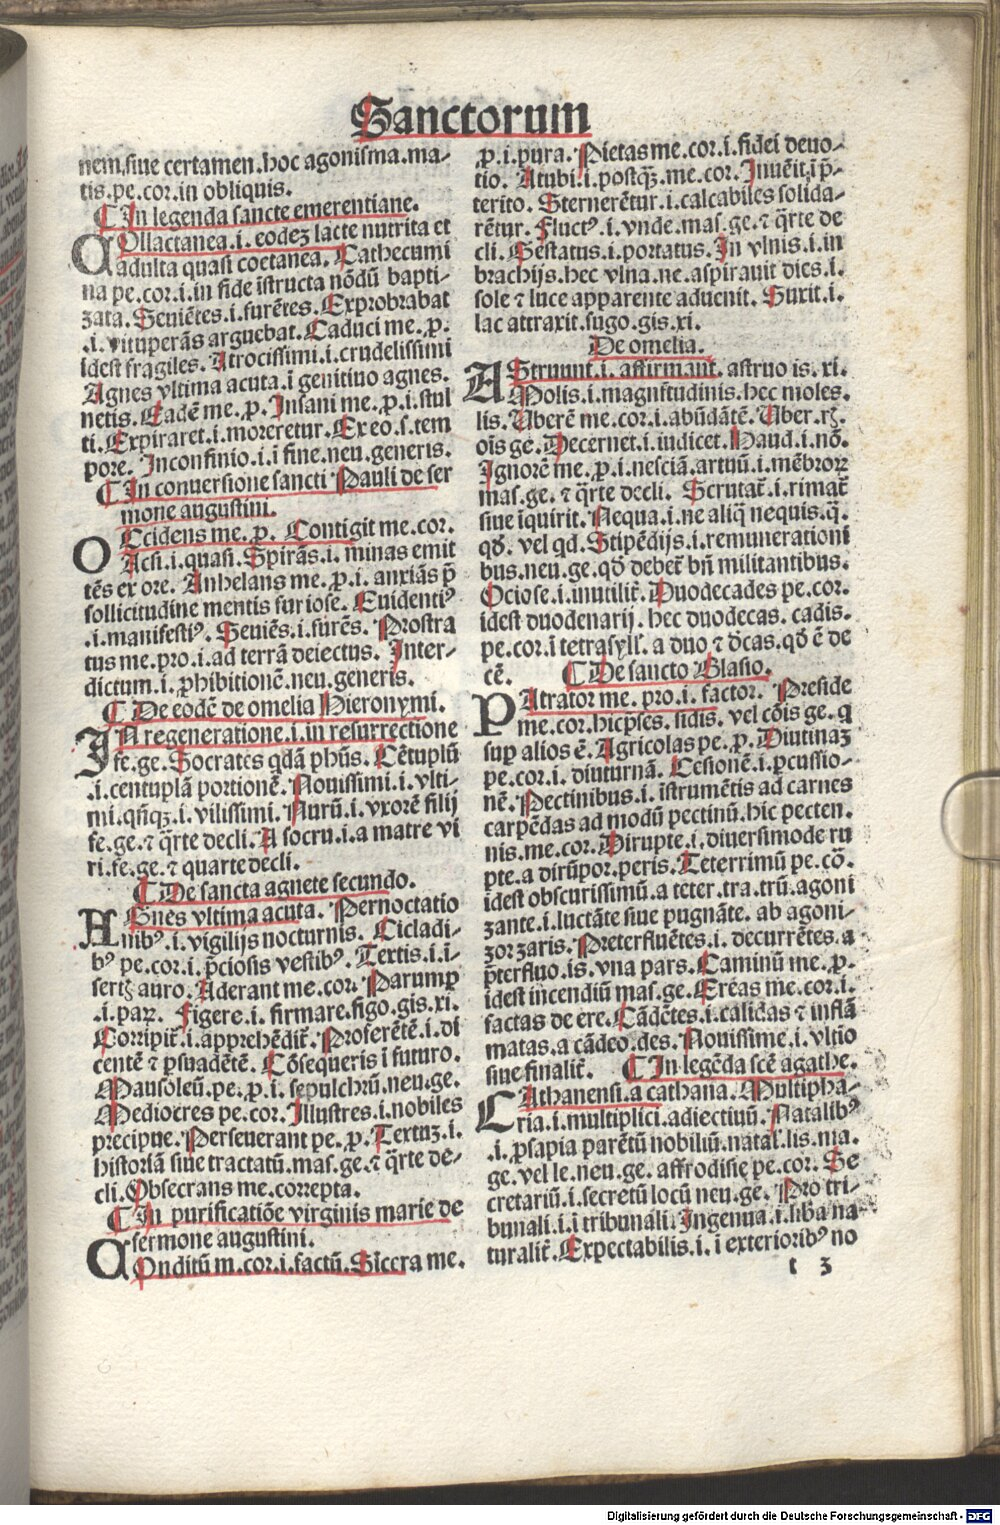 Sanctorum
nem,siue certamen.hoc agonisma.ma-
tis.pe.cor.in obliquis.
¶ In legenda sancte emerentiane.
COllactanea.i.eodeʒ lacte nutrita et
adulta quasi coetanea. Cathecumi
na pe.cor.i.in fide īstructa nōdū bapti-
zata. Seuiētes.i.furētes. Exprobrabat
.i.vituperās arguebat. Caduci me.p.
idest fragiles. Atrocissimi.i.crudelissimi
Agnes vltima acuta.ī genitiuo agnes.
netis. Eadē me.p. Insani me.p.i.stul
ti. Expiraret.i.moreretur. Ex eo.s.tem
pore. Inconfinio.i.ī fine.neu.generis.
¶ In conuersione sancti Pauli de ser
mone augustini.
OCcidens me.p. Contigit me.cor.
Acsi.i.quasi. Spirās.i.minas emit
tēs ex ore. Anhelans me.p.i.anxiās p̄
sollicitudine mentis furiose. Euidentiꝰ
.i.manifestiꝰ. Seuiēs.i.furēs. Prostra
tus me.pro.i.ad terrā deiectus. Inter-
dictum.i.ꝓhibitionē.neu.generis.
¶ De eodē de omelia Hieronymi.
IN regeneratione.i.in resurrectione
fe.ge. Socrates qdā phūs. Cētuplū
.i.centuplā portionē. Nouissimi.i.vlti-
mi.qñqʒ.i.vilissimi. Nurū.i.vxorē filij
fe.ge.⁊ q̄rte decli. A socru.i.a matre vi
ri.fe.ge.⁊ quarte decli.
¶ De sancta agnete secundo.
AGnes vltima acuta. Pernoctatio
nibꝰ.i.vigilijs nocturnis. Cicladi-
bꝰ pe.cor.i.p̄ciosis vestibꝰ. Textis.i.ī-
sertꝭ auro. Aderant me.cor. Parumꝑ
.i.paꝝ. Figere.i.firmare.figo.gis.xi.
Corripit᷑.i.apprehēdit᷑. Proferētē.i.di
centē ⁊ ꝑsuadētē. Cōsequeris ī futuro.
Mausoleū.pe.p.i.sepulchrū.neu.ge.
Mediocres pe.cor. Illustres.i.nobiles
precipue. Perseuerant pe.p. Textuʒ.i.
historiā siue tractatū.mas.ge.⁊ q̄rte de-
cli. Obsecrans me.correpta.
¶ In purificatiōe virginis marie de
sermone augustini.
COnditū m.cor.i.factū. Siccra me.
p.i.pura. Pietas me.cor.i.fidei deuo-
tio. At ubi.i.postqʒ.me.cor. Inuēit.i p̄-
terito. Sternerētur.i.calcabiles solida-
rētur. Fluctꝰ.i.vnde.mas.ge.⁊ q̄rte de
cli. Gestatus.i.portatus. In vlnis.i.in
brachijs.hec vlna.ne.aspirauit dies.i.
sole ⁊ luce apparente aduenit. Suxit.i.
lac attraxit.sugo.gis.xi.
De omelia.
AStruunt.i.affirmant. astruo is.xi.
Molis.i.magnitudinis.hec moles.
lis. Uberē me.cor.i.abūdātē. Uber.rꝭ.
oīs ge. Decernet.i.iudicet. Haud.i.nō.
Ignorē me.p.i.nesciā.artuū.i.mēbroꝝ
mas.ge.⁊ q̄rte decli. Scrutat᷑.i.rimat᷑
siue īquirit. Nequa.i.ne aliq̄ nequis.q̄.
qđ. vel qd. Stipēdijs.i.remunerationi
bus.neu.ge.qđ debet᷑ bn̄ militantibus.
Ociose.i.inutilit᷑. Duodecades pe.cor.
idest duodenarij. hec duodecas. cadis.
pe.cor.ī tetrasyll'. a duo ⁊ decas.qđ ē de
cē.
¶ De sancto Blasio.
PAtrator me.pro.i.factor. Preside
me.cor.hic p̄ses.sidis. vel cōis ge.q
suꝑ alios ē. Agricolas pe.p. Diutinaʒ
pe.cor.i.diuturnā. Lesionē.i.ꝑcussio-
nē. Pectinibus.i.īstrumētis ad carnes
carpēdas ad modū pectinū.hic pecten.
nis.me.cor. Dirupte.i.diuersimode ru
pte.a dirūpor.peris. Teterrimū pe.cō.
idest obscurissimū.a teter.tra.trū.agoni
zante.i.luctāte siue pugnāte. ab agoni-
zor zaris. Preterfluētes.i.decurrētes.a
p̄terfluo.is.vna pars. Caminū me.p.
idest incendiū mas.ge. Ereas me.cor.i.
factas de ere. Cādētes.i.calidas ⁊ inflā
matas.a cādeo.des. Nouissime.i.vltīo
siue finalit᷑. ¶ In legēda scē agathe.
CAthanensi.a cathana. Multipha-
ria.i.multiplici.adiectiuū. Natalibꝰ
.i.ꝓsapia parētū nobiliū.natal'.lis.ma.
ge.vel le.neu.ge. affrodisię pe.cor. Se
cretariū.i.secretū locū neu.ge. Pro tri-
bunali.i.ī tribunali. Ingenua.i.liba na
turalit᷑. Expectabilis.i.ī exterioribꝰ no
t 3
Digitalisierung gefördert durch die Deutsche Forschungsgemeinschaft - DFG